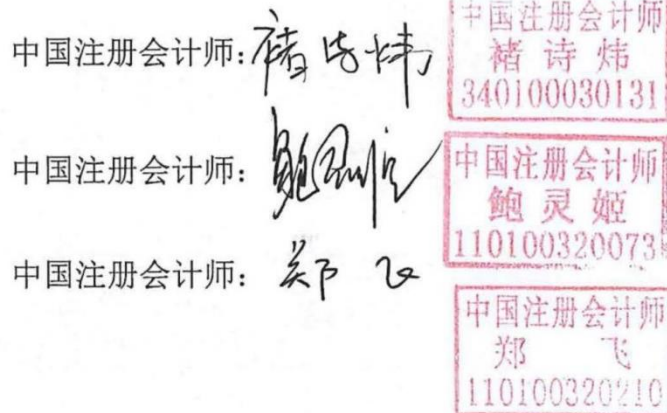 中国注册会计师
中国注册会计师：褚诗炜
褚诗炜
340100030131
中国注册会计师：鲍灵姬
中国注册会计师
鲍灵姬
110100320073
中国注册会计师：郑飞
中国注册会计师
郑飞
110100320210